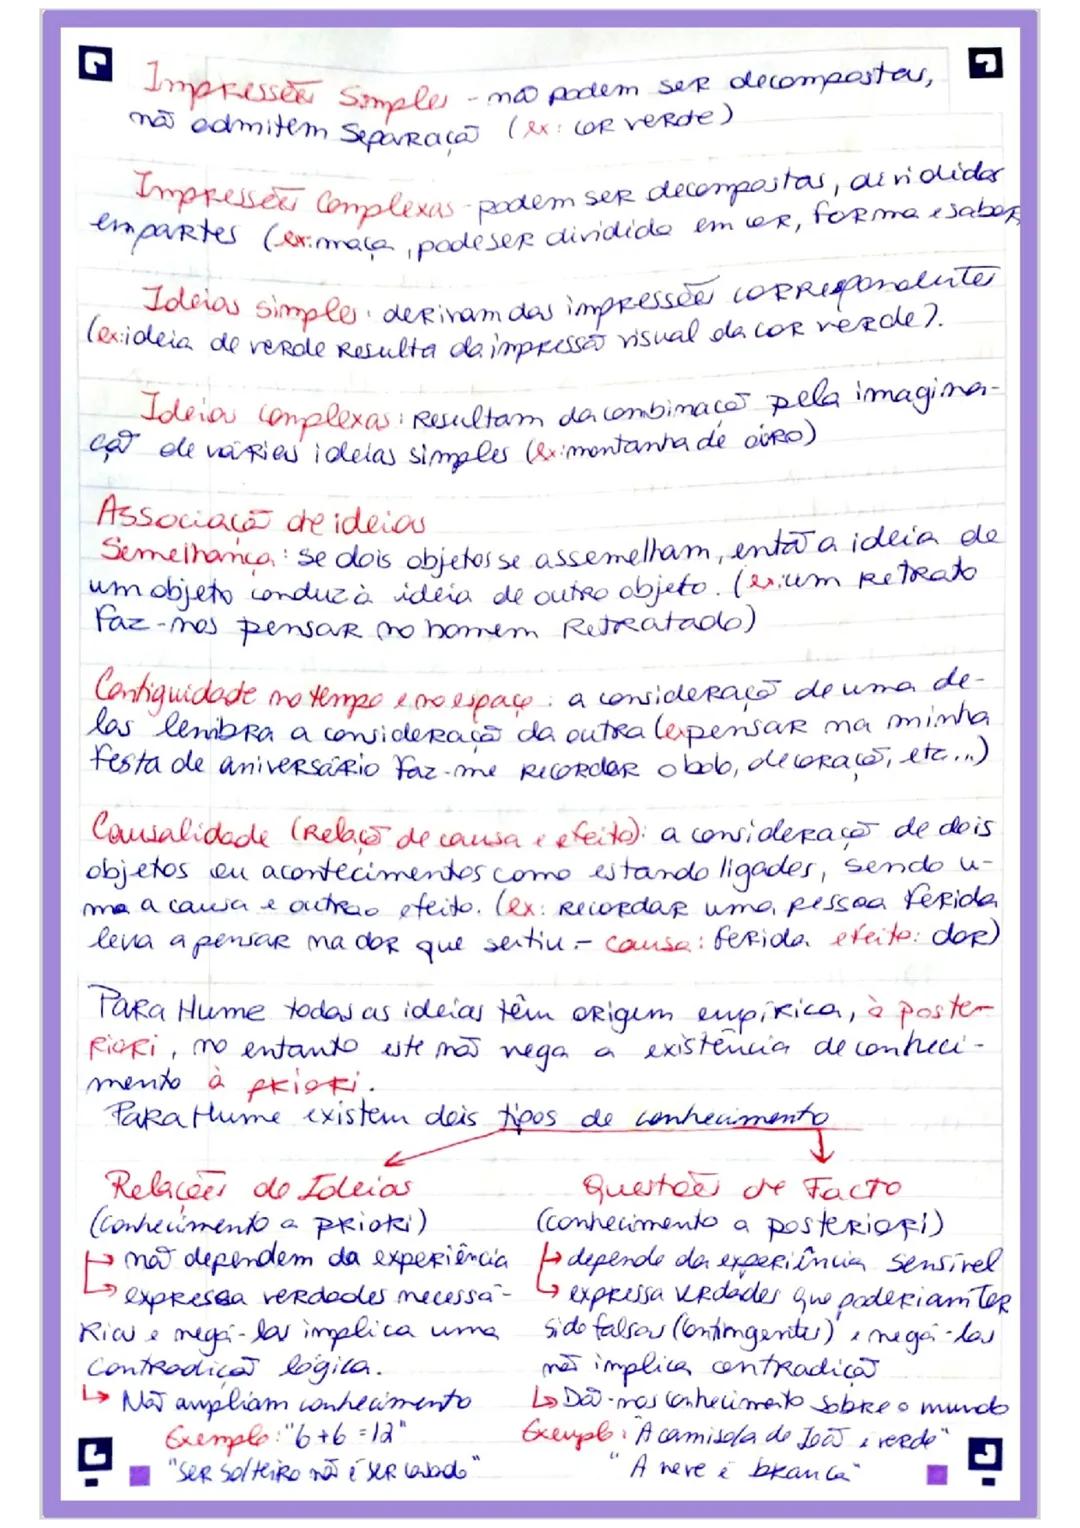 Impressões Simples - não podem ser decompostas,
não admitem separação (ex: cor verde)
Impressões Complexas - podem ser decompostas, divididas
em partes (ex: maça, pode ser dividida em cor, forma e sabor
Ideias simples: derivam das impressões correspondentes
(ex: ideia de verde resulta da impressão visual da cor verde).
Ideias complexas: Resultam da combinação pela imagina-
ção de várias ideias simples (ex: montanha de ouro)
Associação de ideias
Semelhança: se dois objetos se assemelham, então a ideia de
um objeto conduz à ideia de outro objeto. (ex: um retrato
faz-nos pensar no homem retratado)
Contiguidade no tempo e no espaço: a consideração de uma de-
las lembra a consideração da outra (ex pensar na minha
festa de aniversário faz-me recordar o bolo, decoração, etc...)
Causalidade (Relação de causa e efeito): a consideração de dois
objetos ou acontecimentos como estando ligados, sendo u-
ma a causa e outra o efeito. (ex: recordar uma pessoa ferida
leva a pensar na dor que sentiu - causa: ferida efeito: dor)
Para Hume todas as ideias têm origem empírica, à poste-
riori, no entanto este não nega a existência de conheci-
mento à priori.
Para Hume existem dois tipos de conhecimento
Relações de Ideias
(conhecimento a priori)
↳ não dependem da experiência
↳ expressa verdades necessá-
rias e negá-las implica uma
contradição lógica.
↳ Não ampliam conhecimento
Exemplo: "6+6=12"
"Ser solteiro não é ser casado"
Questões de Facto
(conhecimento a posteriori)
↳ depende da experiência sensível
↳ expressa verdades que poderiam ter
sido falsas (contingentes) e negá-las
não implica contradição
↳ Dão-nos conhecimento sobre o mundo
Exemplo: "A camisola do João é verde"
"A neve é branca"